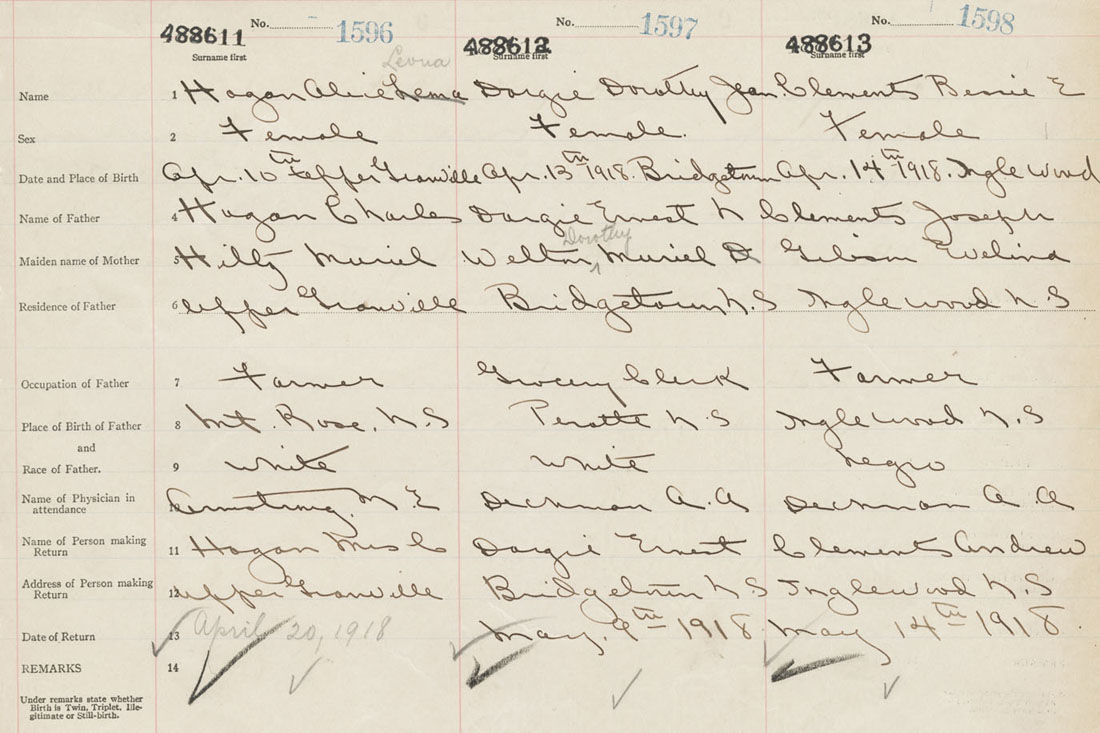 No. 1596 No. 1597 No. 1598
488611 488612 488613
Surname first Surname first Surname first
Levna
Name 1 Hogan Alice Lema Dargie Dorothy Jean Clements Bessie E
Sex 2 Female Female. Female
Date and Place of Birth Apr. 10th Upper Granville Apr. 13th 1918. Bridgetown Apr. 14th 1918. Inglewood
Name of Father 4 Hogan Charles Dargie Ernest N Clements Joseph
Dorothy
Maiden name of Mother 5 Muriel Welton Muriel D Gibson Evelina
Residence of Father 6 Upper Granville Bridgetown N.S Inglewood N S
Occupation of Father 7 Farmer Grocery Clerk Farmer
Place of Birth of Father 8 Mt. Rose, N.S Perotte N S Inglewood N.S
and
Race of Father. 9 White White Negro
Name of Physician in attendance Armstrong, M. E Deckman A. A Deckman A. A
Name of Person making Return 11 Hogan Mrs C Dargie Ernest Clements Andrew
Address of Person making Return 12 Upper Granville Bridgetown N S Inglewood N.S
Date of Return 13 April 20, 1918 May. 9th 1918 May 14th 1918.
REMARKS 14
Under remarks state whether
Birth is Twin, Triplet, Ille-
gitimate or Still-birth.